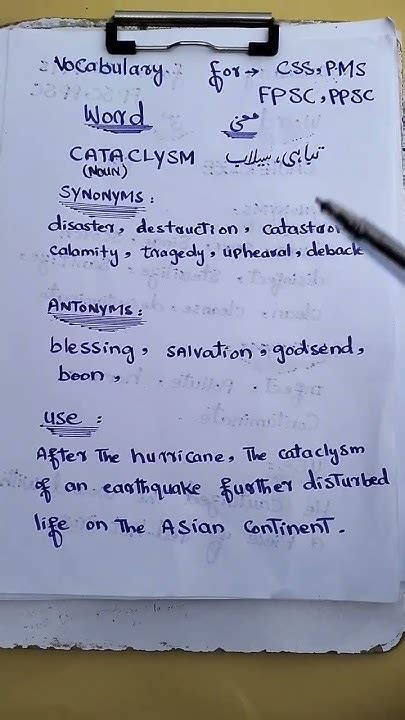 Vocabulary for → CSS, PMS
FPSC, PPSC
Word معنی
CATACLYSM تباہی، سیلاب
(NOUN)
SYNONYMS:
disaster, destruction,
calamity, tragedy, upheaval, deback
ANTONYMS:
blessing, salvation, godsend,
boon,
use:
After The hurricane, The cataclysm
of an earthquake further disturbed
life on The Asian Continent.